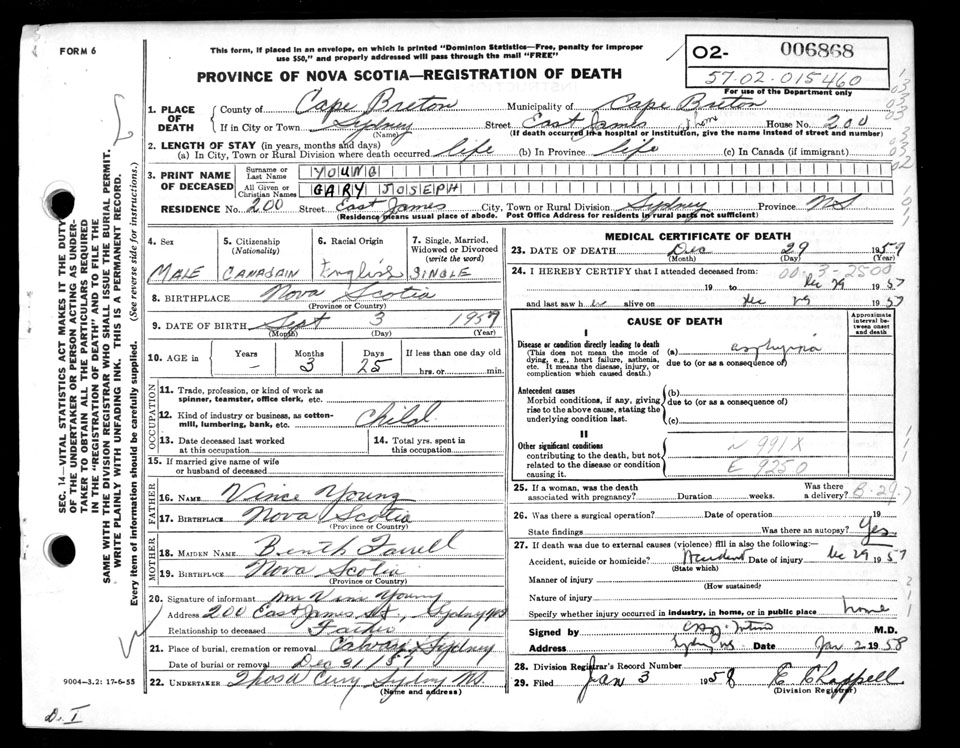 FORM 6
This form, if placed in an envelope, on which is printed "Dominion Statistics—Free, penalty for improper
use $50," and properly addressed will pass through the mail "FREE"
PROVINCE OF NOVA SCOTIA—REGISTRATION OF DEATH
02- 006868
57-02-015460
For use of the Department only
1. PLACE OF DEATH
County of Cape Breton Municipality of Cape Breton
If in City or Town Sydney Street East James, home House No. 200
(Name) (If death occurred in a hospital or institution, give the name instead of street and number)
2. LENGTH OF STAY (in years, months and days)
(a) In City, Town or Rural Division where death occurred life (b) In Province life (c) In Canada (if immigrant)
3. PRINT NAME OF DECEASED
Surname or Last Name YOUNG
All Given or Christian Names GARY JOSEPH
RESIDENCE No. 200 Street East James City, Town or Rural Division Sydney Province NS
(Residence means usual place of abode. Post Office Address for residents in rural parts not sufficient)
4. Sex 5. Citizenship (Nationality) 6. Racial Origin 7. Single, Married, Widowed or Divorced (write the word)
MALE CANADAIN English SINGLE
8. BIRTHPLACE Nova Scotia
(Province or Country)
9. DATE OF BIRTH Sept 3 1957
(Month) (Day) (Year)
10. AGE in Years Months Days If less than one day old
- 3 25 hrs. or min.
OCCUPATION
11. Trade, profession, or kind of work as
spinner, teamster, office clerk, etc.
12. Kind of industry or business, as cotton-
mill, lumbering, bank, etc. Child
13. Date deceased last worked
at this occupation
14. Total yrs. spent in
this occupation
15. If married give name of wife
or husband of deceased
FATHER
16. NAME Vince Young
17. BIRTHPLACE Nova Scotia
(Province or Country)
MOTHER
18. MAIDEN NAME Farrell
19. BIRTHPLACE Nova Scotia
(Province or Country)
20. Signature of informant Young
Address 200 East James St, Sydney NS
Relationship to deceased Father
21. Place of burial, cremation or removal Sydney
Date of burial or removal Dec 31/57
22. UNDERTAKER Thos. Curry Sydney NS.
(Name and address)
MEDICAL CERTIFICATE OF DEATH
23. DATE OF DEATH Dec 29 1957
(Month) (Day) (Year)
24. I HEREBY CERTIFY that I attended deceased from: 00-3-2500
19 to Dec 29 1957
and last saw h alive on Dec 29 1957
CAUSE OF DEATH
Approximate interval between onset and death
I
Disease or condition directly leading to death
(This does not mean the mode of
dying, e.g., heart failure, asthenia,
etc. It means the disease, injury, or
complication which caused death.)
(a) asphyxia
due to (or as a consequence of)
Antecedent causes
Morbid conditions, if any, giving
rise to the above cause, stating the
underlying condition last.
(b)
due to (or as a consequence of)
(c)
II
Other significant conditions
contributing to the death, but not
related to the disease or condition
causing it.
N 991X
E 9250
25. If a woman, was the death
associated with pregnancy? Duration weeks. Was there
a delivery?
26. Was there a surgical operation? Date of operation 19
State findings Was there an autopsy? Yes
27. If death was due to external causes (violence) fill in also the following:—
Accident, suicide or homicide? Accident Date of injury Dec 29 1957
(State which)
Manner of injury
(How sustained)
Nature of injury
Specify whether injury occurred in industry, in home, or in public place home
Signed by M.D.
Address Sydney NS Date Jan 2 1958
28. Division Registrar's Record Number
29. Filed Jan 3 1958 E Chappell
(Division Registrar)
SEC. 14—VITAL STATISTICS ACT MAKES IT THE DUTY
OF THE UNDERTAKER OR PERSON ACTING AS UNDER-
TAKER TO OBTAIN ALL THE PARTICULARS REQUIRED
IN THE "REGISTRATION OF DEATH" AND TO FILE THE
SAME WITH THE DIVISION REGISTRAR WHO SHALL ISSUE THE BURIAL PERMIT.
WRITE PLAINLY WITH UNFADING INK. THIS IS A PERMANENT RECORD.
Every item of information should be carefully supplied. (See reverse side for instructions.)
9004—3.2: 17-6-55
D. I